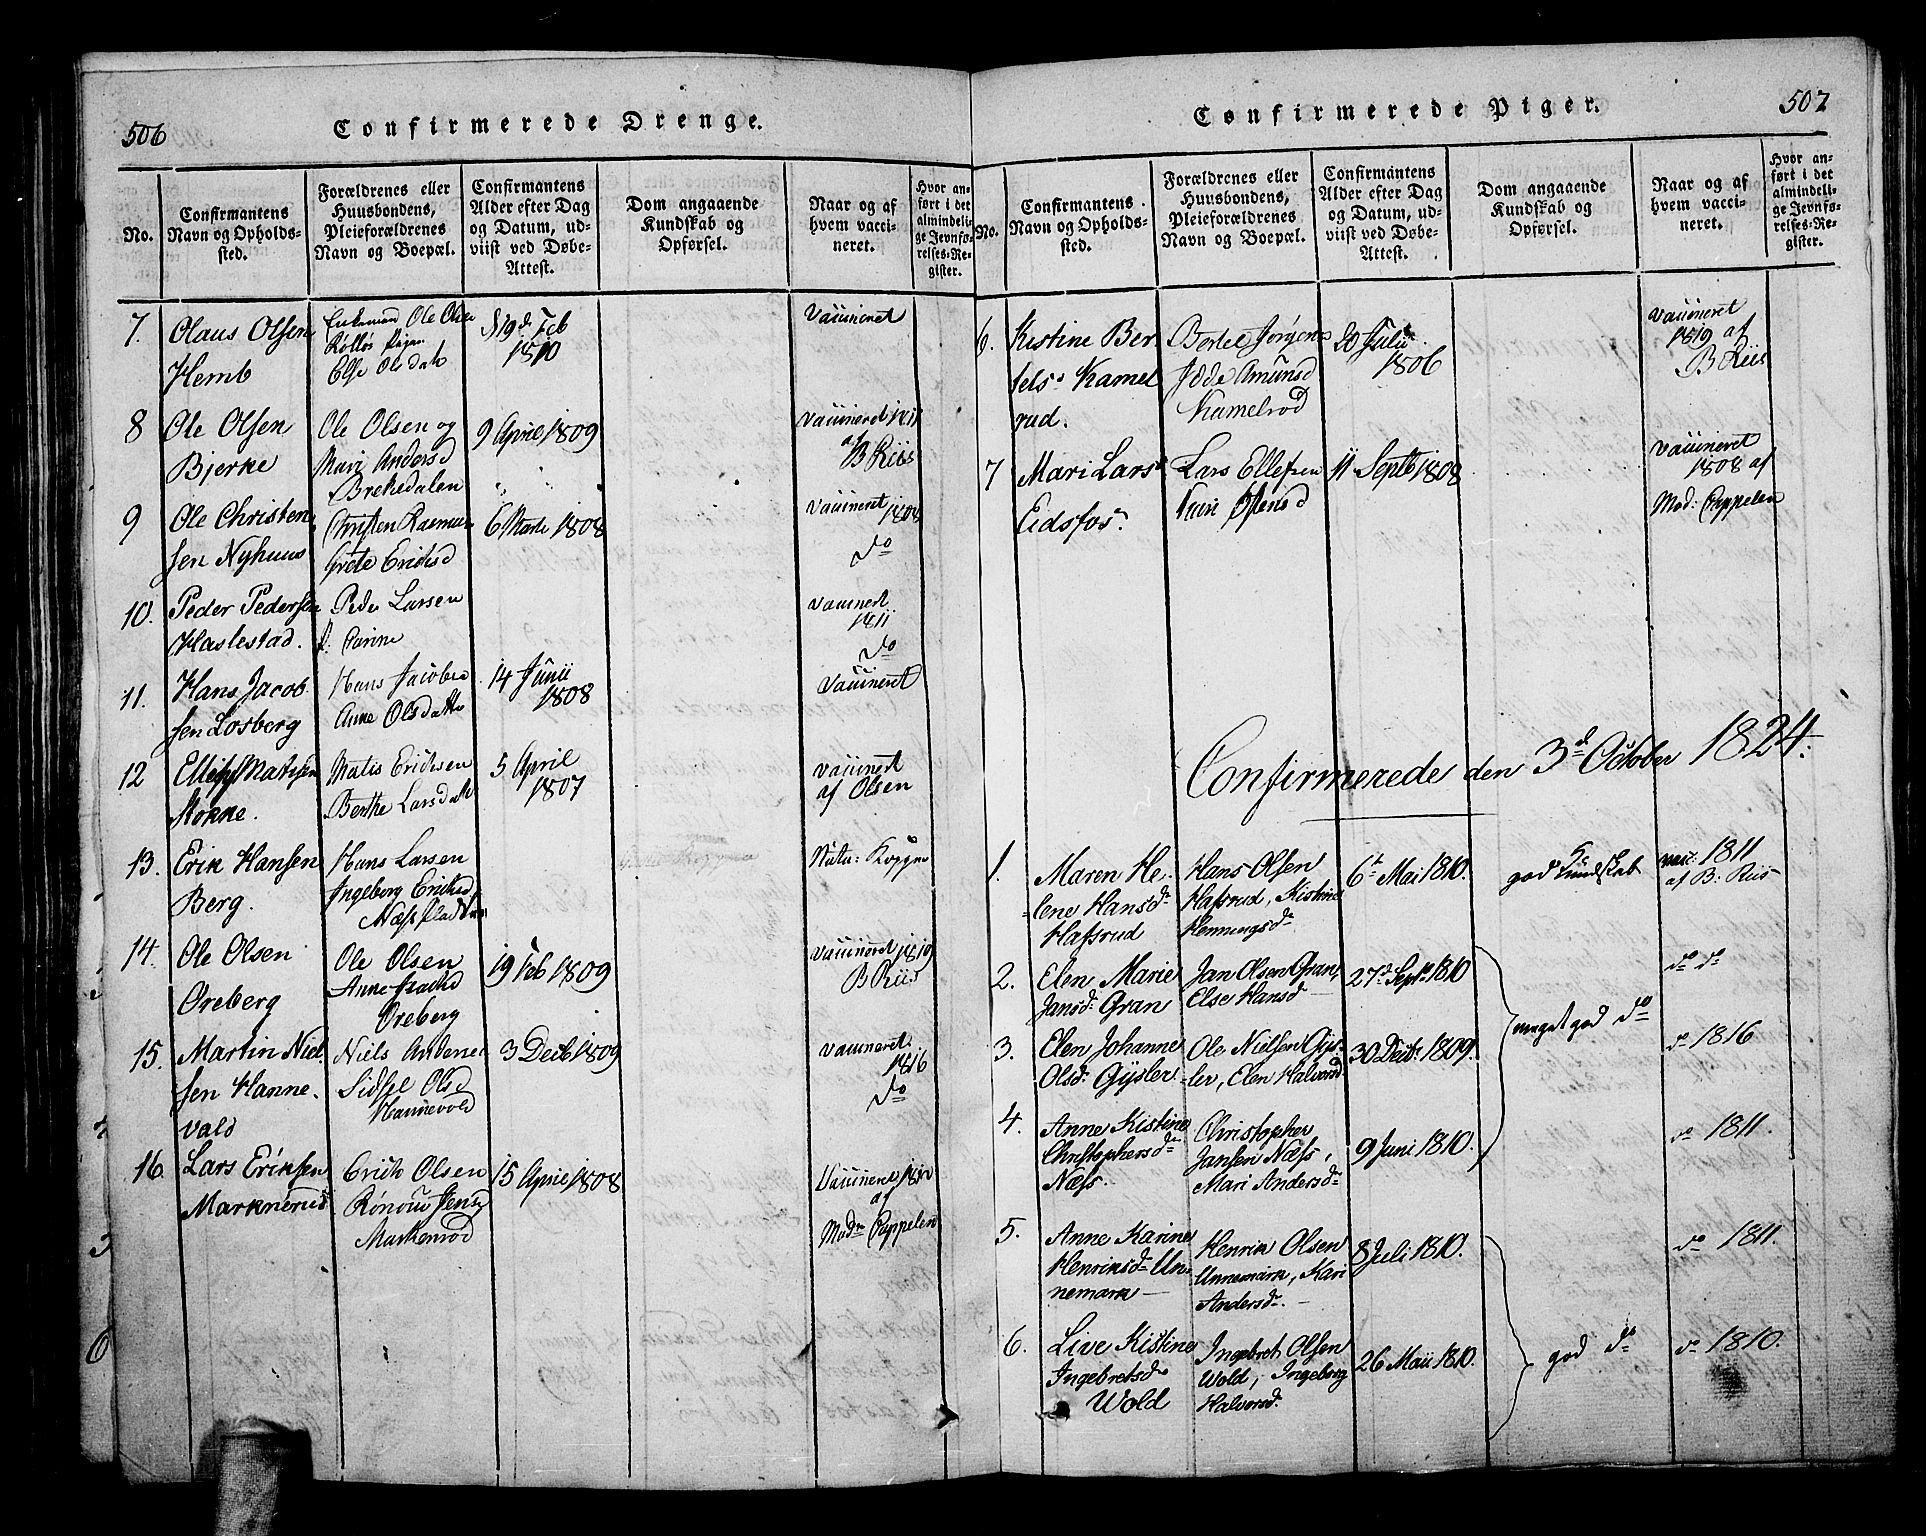 506
Confirmerede Drenge.
No.
Confirmantens
Navn og Opholds-
sted.
Forældrenes eller
Huusbondens,
Pleieforældrenes
Navn og Boepæl.
Confirmantens
Alder efter Dag
og Datum, ud-
viist ved Døbe-
Attest.
Dom angaaende
Kundskab og
Opførsel.
Naar og af
hvem vacci-
neret.
Hvor an-
ført i det
almindeli-
ge Jevnfø-
relses-Re-
gister.
7.
Olaus Olsen
Hemb
Ole Olse
Else Olsdatt
19de Feb
1810
Vaccineret
8
Ole Olsen
Bjerke
Ole Olsen og
Mari Andersd
Brekedalen
9 April 1809
Vaccineret 1811
af
B Riis
9
Ole Christen
sen Nyhuus
Christen Rasmus
Grete Ericksd
6 Marts 1808
Vaccineret
1808
do
10.
Peder Pedersen
Haslestad.
Peder Larsen
Carine
Vaccineret
1811
do
11.
Hans Jacob
sen Losberg
Hans Jacobse
Anne Olsdatter
14 Junii
1808
Vaccineret
12
Ellef Matisen
Matis Ericksen
Berthe Larsdatt
5 April
1807
Vaccineret
af Olsen
13.
Erik Hansen
Berg.
Hans Larsen
Ingeborg Ericksd
Natu: Kopper
14.
Ole Olsen
Oreberg
Ole Olsen
Anne
Oreberg
19 Feb 1809
Vaccineret 1819
B Riis
15.
Martin Niel
sen Hanne.
vald
Niels Anderse
Sidsel Olsd
Hannevold
3 Decb 1809
Vaccineret.
1816
do
16.
Lars Eriksen
Marknerud
Erich Olsen
Rønnou Jensd
Markerød
15 April 1808
Vaccineret 1810
af
Modr Cappelen
507
Confirmerede Piger.
No.
Confirmantens
Navn og Opholds-
sted.
Forældrenes eller
Huusbondens,
Pleieforældrenes
Navn og Boepæl.
Confirmantens
Alder efter Dag
og Datum, ud-
viist ved Døbe-
Attest.
Dom angaaende
Kundskab og
Opførsel.
Naar og af
hvem vacci-
neret.
Hvor an-
ført i det
almindeli-
ge Jevnfø-
relses-Re-
gister.
6.
Kistine Ber
tels. Kamel
rud.
Bertel Jørgens
Amunsd
Kamelrød
20 Julii
1806
Vaccineret
1819 af
B Riis
7
Mari Lars
Eidsfos.
Lars Ellefsen
11 Septb 1808
Vaccineret
1808 af
Mod: Cappelen
Confirmerede den 3de October 1824.
1.
Maren He-
=lene Hansdr
Hafsrud
Hans Olsen
Hafsrud, Kistine
Henningsdr
6te Mai 1810.
god Kundskab
vacc: 1811
af B: Riis
2.
Elen Marie
Jansd: Gran
Jan Olsen Gran,
Else Hansd
27de Septr 1810
meget god do
do do
3.
Elen Johanne
Olsd: Gysler
Ole Nielsen Gys-
ler, Elen Halvorsd
30 Decbr 1809.
do 1816
4.
Anne Kistine
Christophersdr
Næss.
Christopher
Jansen Næss,
Mari Andersdr
9 Juni 1810.
do 1811.
5.
Anne Karine
Henriksdr Un-
nemark
Henrik Olsen
Unnemark, Kari
Andersdr.
8 Juli 1810.
god do
do 1811.
6.
Live Kistine
Ingebretsdr
Wold
Ingebret Olsen
Wold, Ingeborg
Halvorsd.
26 Maii 1810.
do 1810.